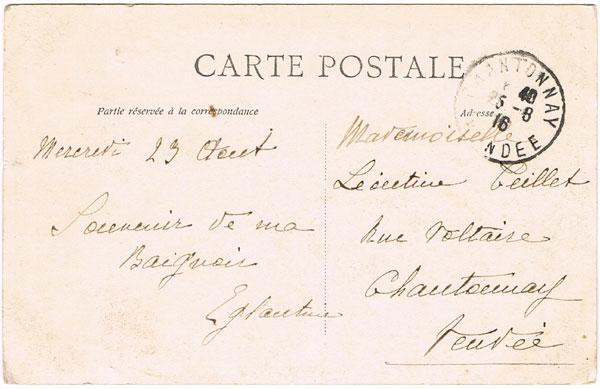 CARTE POSTALE
Partie réservée à la correspondance
Adresse
CHANTONNAY
40
25-8
16
VENDEE
Mercredi 23 Août
Souvenir de ma
Baignoir
Eglantine
Mademoiselle
Léontine Teillet
Rue Voltaire
Chantonnay
Vendée